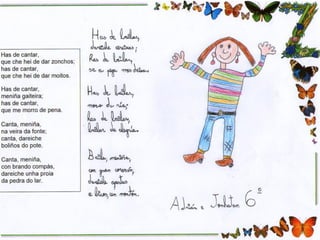 Has de cantar,
que che hei de dar zonchos;
has de cantar,
que che hei de dar moitos.
Has de cantar,
meniña gaiteira;
has de cantar,
que me morro de pena.
Canta, meniña,
na veira da fonte;
canta, dareiche
boliños do pote.
Canta, meniña,
con brando compás,
dareiche unha proia
da pedra do lar.
Has de bailar,
dareiche
has de bailar,
se o papa
Has de bailar,
has de bailar,
bailar de alegría.
Baila, meniña,
con gran
dareiche
Adrián e Jonhatan 6º